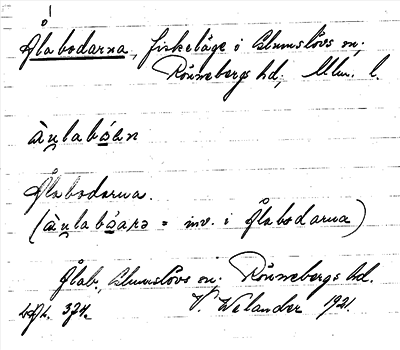 Ålabodarna, fiskeläge i Glumslövs sn;
Rönnebergs hd; Mlm. l.
àu̯labǻan
Ålabodarna.
(àu̯labǻarə = inv. i Ålabodarna)
Ålab., Glumslövs sn; Rönnebergs hd.
V. Welander 1921.